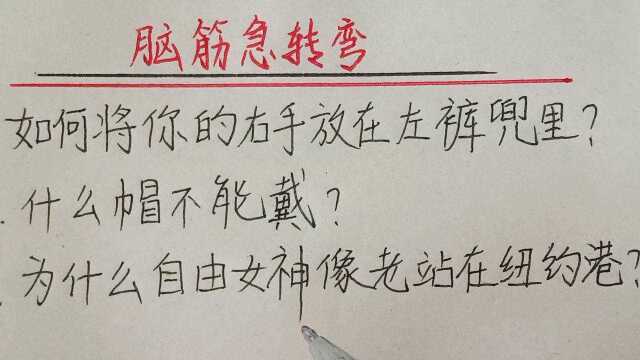 脑筋急转弯
如何将你的右手放在左裤兜里?
什么帽不能戴?
为什么自由女神像老站在纽约港?